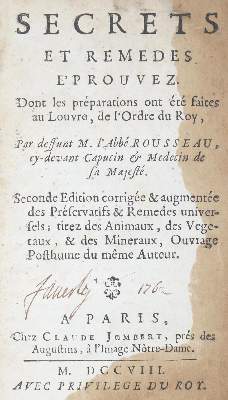 SECRETS
ET REMEDES
E'PROUVEZ.
Dont les préparations ont été faites
au Louvre, de l'Ordre du Roy,
Par deffunt M. l'Abbé ROUSSEAU,
cy-devant Capucin & Medecin de
sa Majesté.
Seconde Edition corrigée & augmentée
des Préservatifs & Remedes univer-
sels; tirez des Animaux, des Vege-
taux, & des Mineraux, Ouvrage
Posthume du même Auteur.
176
A PARIS,
Chez CLAUDE JOMBERT, prés des
Augustins, à l'Image Nôtre-Dame.
M. DCCVIII.
AVEC PRIVILEGE DU ROY.